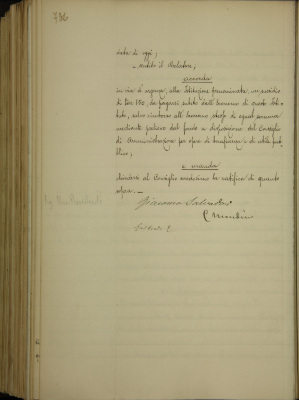 736
data di oggi;
– sentito il Relatore;
accorda
in via di urgenza, alla Istituzione prenominata, un sussidio
di Lire 100, da pagarsi subito dall'Economo di questo Isti-
tuto, salvo rimborso all'Economo stesso di egual somma
mediante prelievo dal fondo a disposizione del Consiglio
di Amministrazione per opere di beneficenza e di utilità pub-
blica;
e manda
chiedersi al Consiglio medesimo la ratifica di quanto
sopra. –